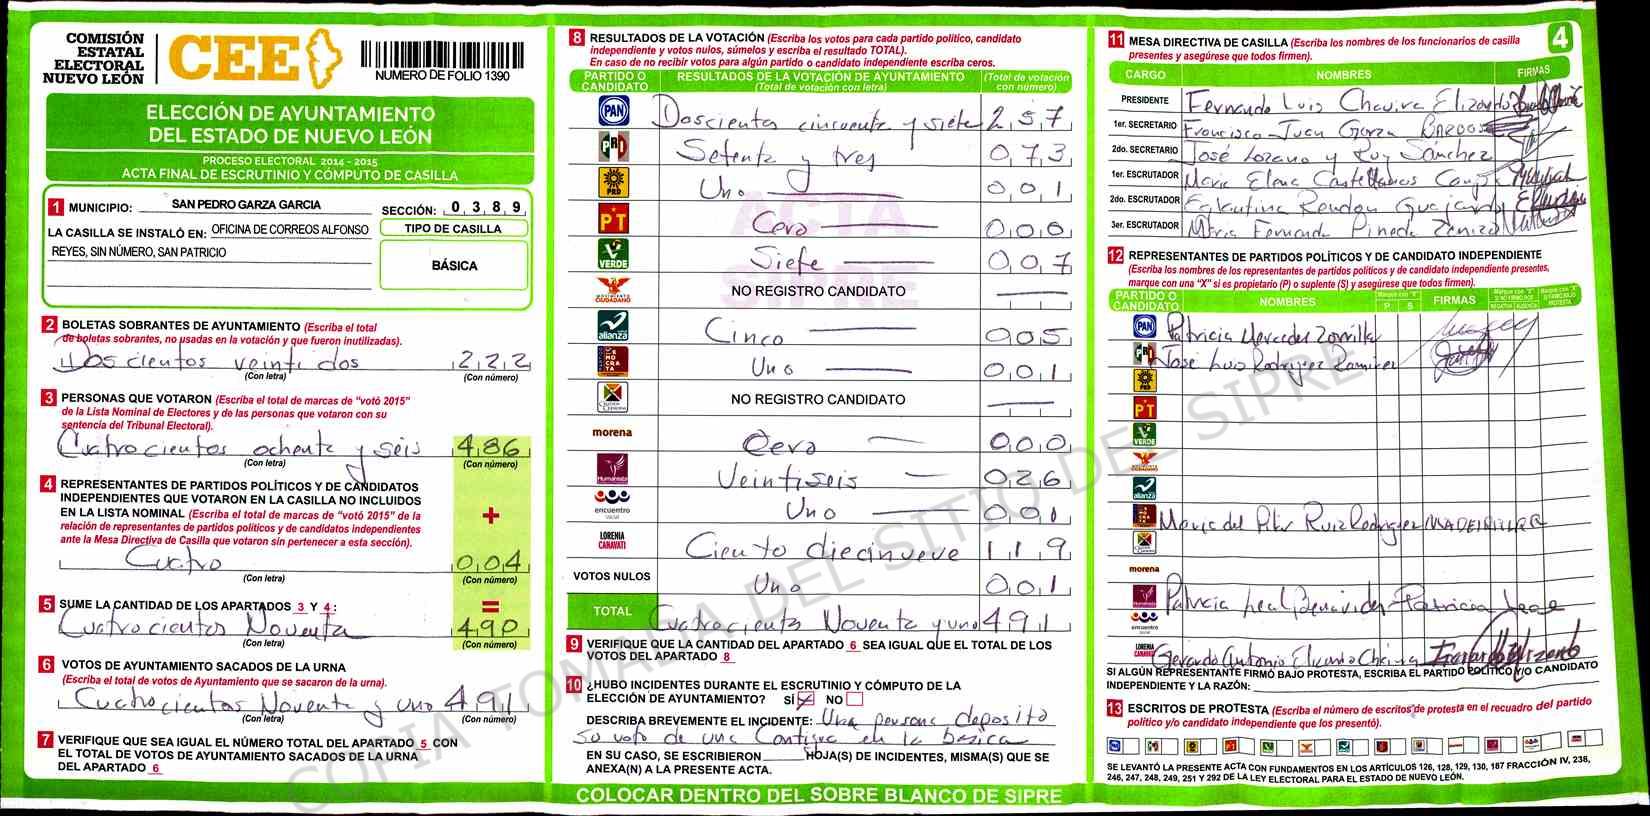 COMISIÓN
ESTATAL
ELECTORAL
NUEVO LEÓN
CEE
NUMERO DE FOLIO 1390
ELECCIÓN DE AYUNTAMIENTO
DEL ESTADO DE NUEVO LEÓN
PROCESO ELECTORAL 2014 - 2015
ACTA FINAL DE ESCRUTINIO Y CÓMPUTO DE CASILLA
1 MUNICIPIO: SAN PEDRO GARZA GARCIA
SECCIÓN: 0 3 8 9
LA CASILLA SE INSTALÓ EN: OFICINA DE CORREOS ALFONSO
REYES, SIN NÚMERO, SAN PATRICIO
TIPO DE CASILLA
BÁSICA
2 BOLETAS SOBRANTES DE AYUNTAMIENTO (Escriba el total
de boletas sobrantes, no usadas en la votación y que fueron inutilizadas).
Doscientos veintidos 2 2 2
(Con letra) (Con número)
3 PERSONAS QUE VOTARON (Escriba el total de marcas de "votó 2015"
de la Lista Nominal de Electores y de las personas que votaron con su
sentencia del Tribunal Electoral).
Cuatrocientos ochenta y seis 4 8 6
(Con letra) (Con número)
4 REPRESENTANTES DE PARTIDOS POLÍTICOS Y DE CANDIDATOS
INDEPENDIENTES QUE VOTARON EN LA CASILLA NO INCLUIDOS
EN LA LISTA NOMINAL (Escriba el total de marcas de "votó 2015" de la
relación de representantes de partidos políticos y de candidatos independientes
ante la Mesa Directiva de Casilla que votaron sin pertenecer a esta sección).
+
Cuatro 0 0 4
(Con letra) (Con número)
5 SUME LA CANTIDAD DE LOS APARTADOS 3 Y 4: =
Cuatrocientos Noventa 4 9 0
(Con letra) (Con número)
6 VOTOS DE AYUNTAMIENTO SACADOS DE LA URNA
(Escriba el total de votos de Ayuntamiento que se sacaron de la urna).
Cuatrocientos Noventa y uno 4 9 1
(Con letra) (Con número)
7 VERIFIQUE QUE SEA IGUAL EL NÚMERO TOTAL DEL APARTADO 5 CON
EL TOTAL DE VOTOS DE AYUNTAMIENTO SACADOS DE LA URNA
DEL APARTADO 6
8 RESULTADOS DE LA VOTACIÓN (Escriba los votos para cada partido político, candidato
independiente y votos nulos, súmelos y escriba el resultado TOTAL).
En caso de no recibir votos para algún partido o candidato independiente escriba ceros.
PARTIDO O CANDIDATO
RESULTADOS DE LA VOTACIÓN DE AYUNTAMIENTO
(Total de votación con letra)
(Total de votación con número)
PAN Doscientos cincuenta y siete 2 5 7
PRI Setenta y tres 0 7 3
PRD Uno 0 0 1
PT Cero 0 0 0
VERDE Siete 0 0 7
MOVIMIENTO CIUDADANO NO REGISTRO CANDIDATO
alianza Cinco 0 0 5
DEMOCRATA Uno 0 0 1
NO REGISTRO CANDIDATO
morena Cero 0 0 0
Humanista Veintiseis 0 2 6
encuentro social Uno 0 0 1
LORENIA CANAVATI Ciento diecinueve 1 1 9
VOTOS NULOS Uno 0 0 1
TOTAL Cuatrocientos Noventa y uno 4 9 1
9 VERIFIQUE QUE LA CANTIDAD DEL APARTADO 6 SEA IGUAL QUE EL TOTAL DE LOS
VOTOS DEL APARTADO 8
10 ¿HUBO INCIDENTES DURANTE EL ESCRUTINIO Y CÓMPUTO DE LA
ELECCIÓN DE AYUNTAMIENTO? SÍ NO
DESCRIBA BREVEMENTE EL INCIDENTE: Una persona deposito
su voto de una Contigua en la basica
EN SU CASO, SE ESCRIBIERON HOJA(S) DE INCIDENTES, MISMA(S) QUE SE
ANEXA(N) A LA PRESENTE ACTA.
COLOCAR DENTRO DEL SOBRE BLANCO DE SIPRE
11 MESA DIRECTIVA DE CASILLA (Escriba los nombres de los funcionarios de casilla
presentes y asegúrese que todos firmen).
4
CARGO NOMBRES FIRMAS
PRESIDENTE Fernando Luis Chavira Elizondo
1er. SECRETARIO Francisco Juan Garza Bardos
2do. SECRETARIO José Lozano y Ruy Sánchez
1er. ESCRUTADOR Maria Elena Castellanos
2do. ESCRUTADOR Rendon Guajardo
3er. ESCRUTADOR Maria Fernanda Pineda
12 REPRESENTANTES DE PARTIDOS POLÍTICOS Y DE CANDIDATO INDEPENDIENTE
(Escriba los nombres de los representantes de partidos políticos y de candidato independiente presentes,
marque con una "X" si es propietario (P) o suplente (S) y asegúrese que todos firmen).
PARTIDO O CANDIDATO NOMBRES Marque con "X" P S FIRMAS
PAN Patricia Mercedes Zorrilla
PRI José Luis Rodriguez Ramirez
PRD
PT
VERDE
alianza
Maria del Pilar Ruiz Rodriguez
morena
Humanista Patricia Leal Benavides Patricia Leal
encuentro social
LORENIA CANAVATI Gerardo Antonio
SI ALGÚN REPRESENTANTE FIRMÓ BAJO PROTESTA, ESCRIBA EL PARTIDO POLÍTICO Y/O CANDIDATO
INDEPENDIENTE Y LA RAZÓN:
13 ESCRITOS DE PROTESTA (Escriba el número de escritos de protesta en el recuadro del partido
político y/o candidato independiente que los presentó).
SE LEVANTÓ LA PRESENTE ACTA CON FUNDAMENTOS EN LOS ARTÍCULOS 126, 128, 129, 130, 187 FRACCIÓN IV, 238,
246, 247, 248, 249, 251 Y 292 DE LA LEY ELECTORAL PARA EL ESTADO DE NUEVO LEÓN.
ACTA
SIPRE
COPIA TOMADA DEL SITIO DEL SIPRE